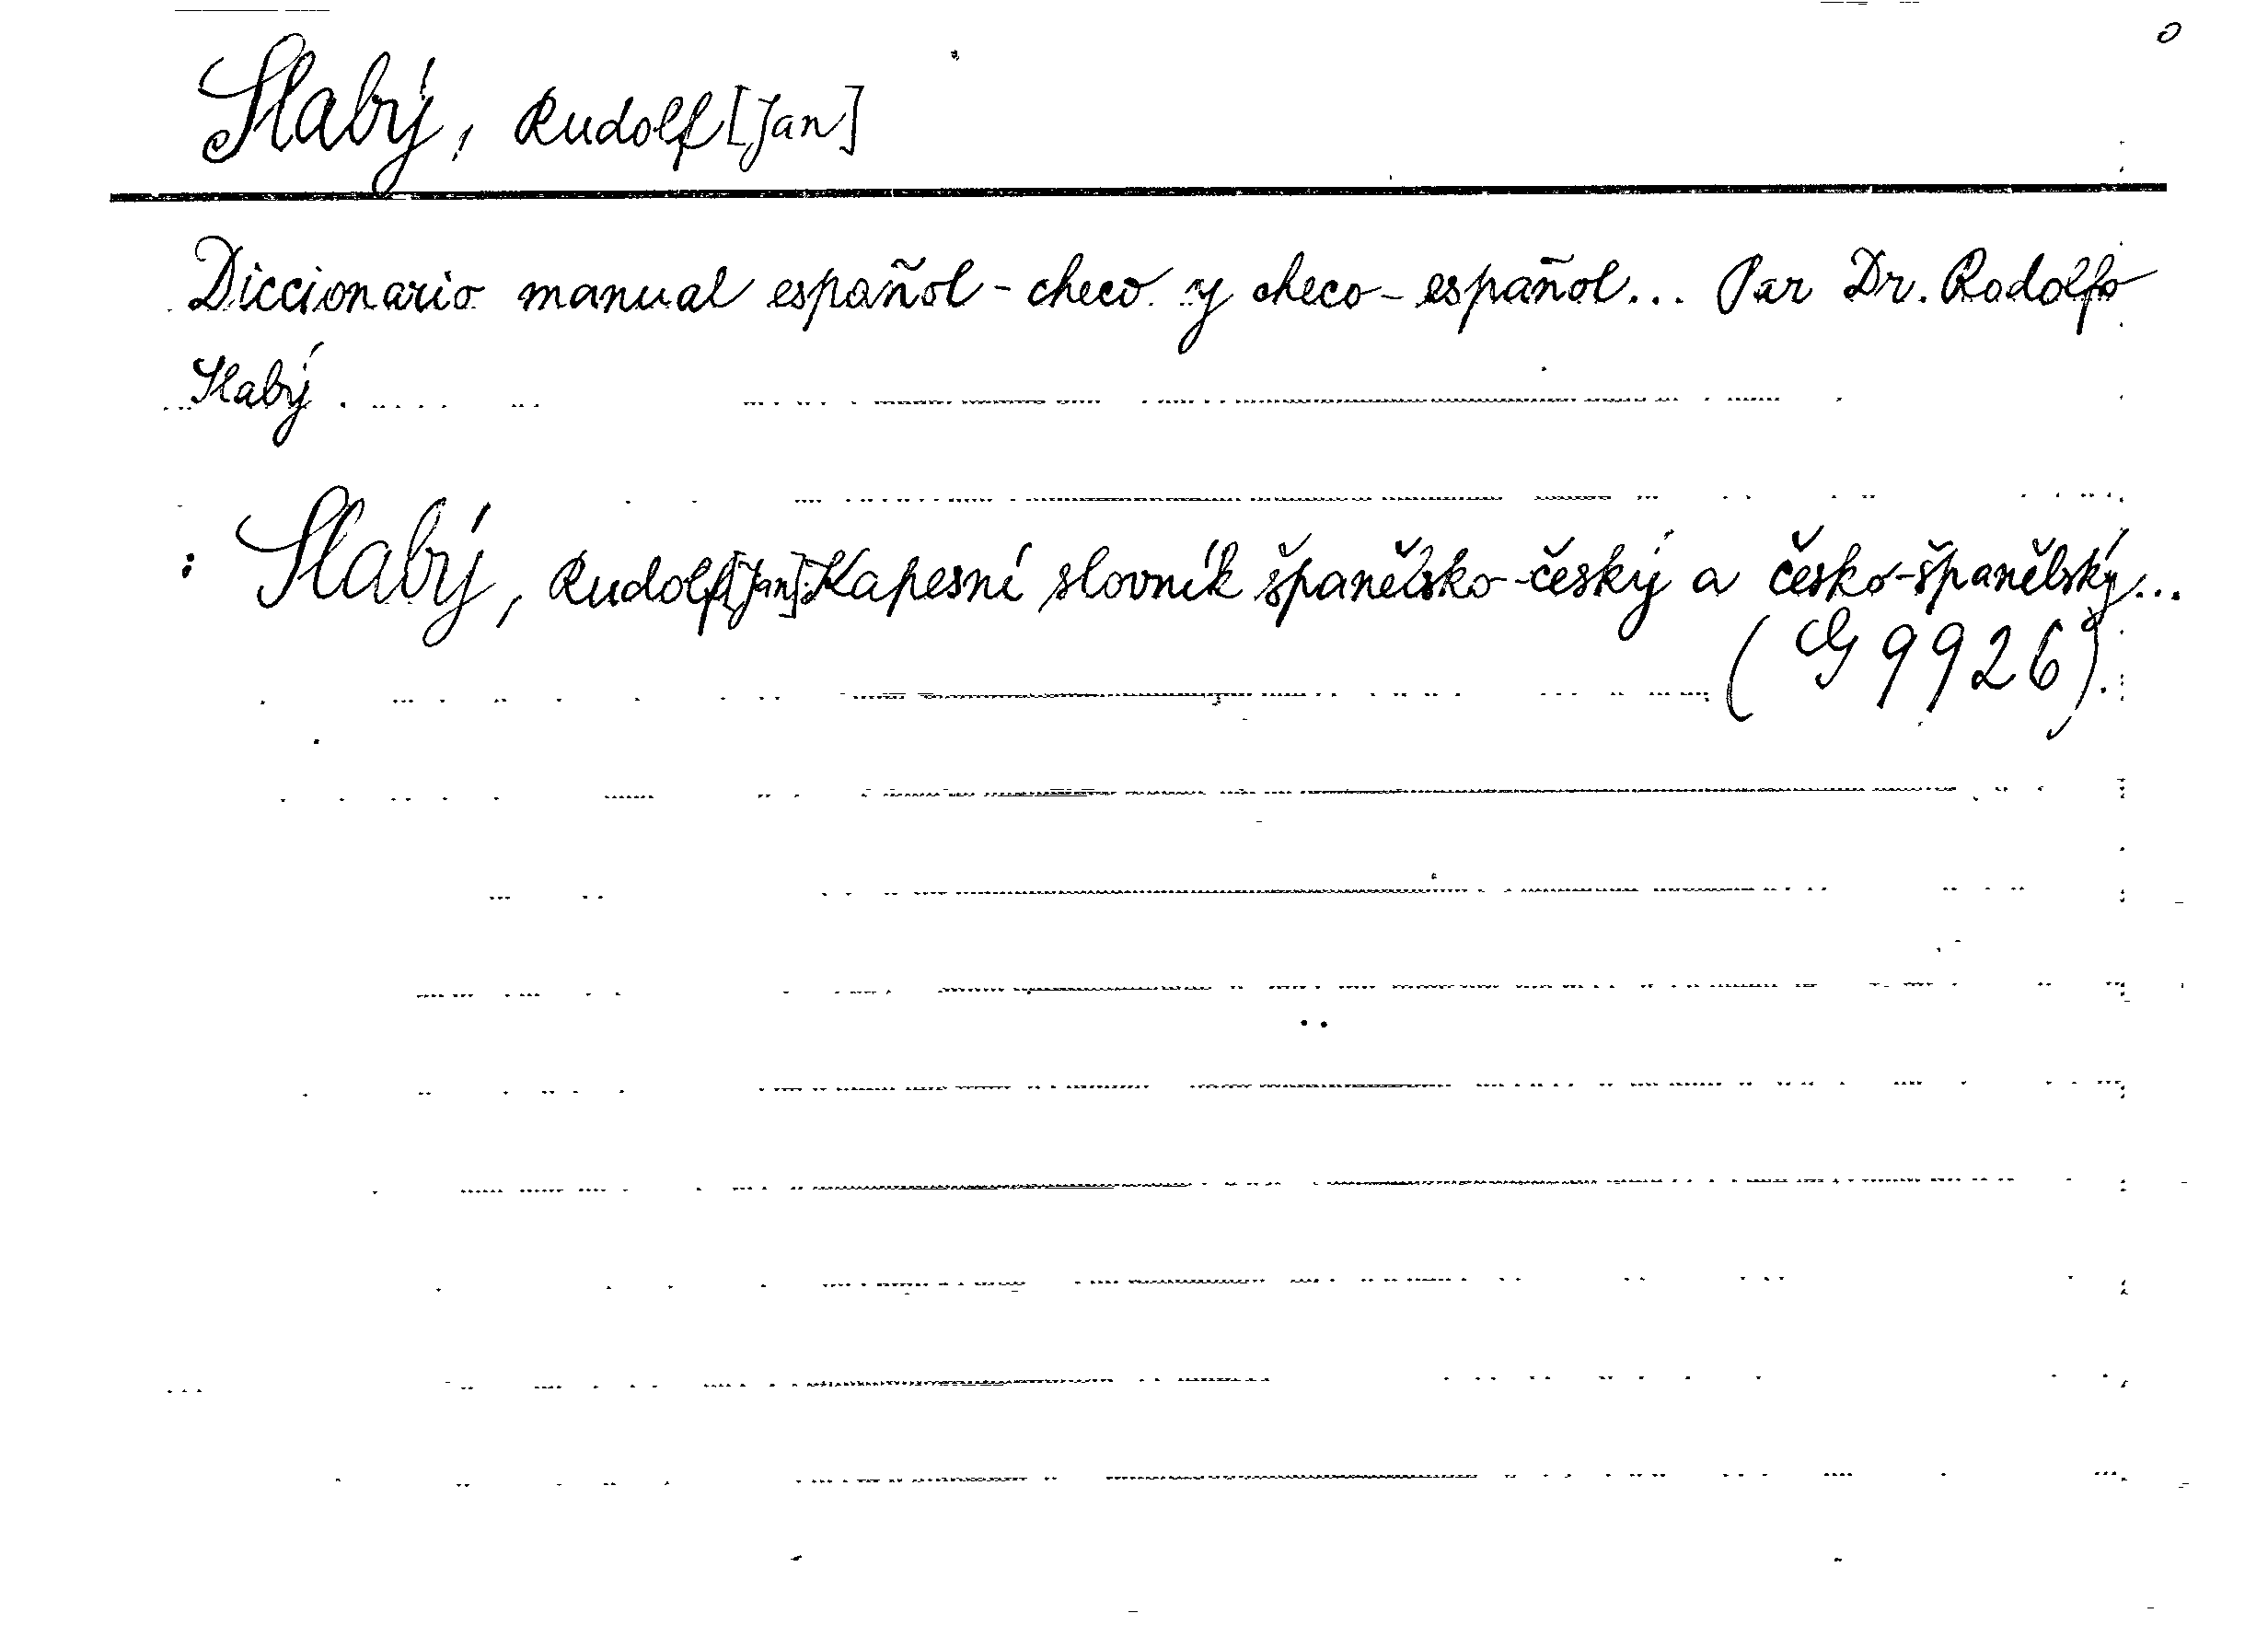 Slabý, Rudolf [Jan]
Diccionario manual español - checo y checo - español... Par Dr. Rodolfo
Slabý.
: Slabý, Rudolf [Jan]: Kapesní slovník španělsko-český a česko-španělský...
(G 9926).